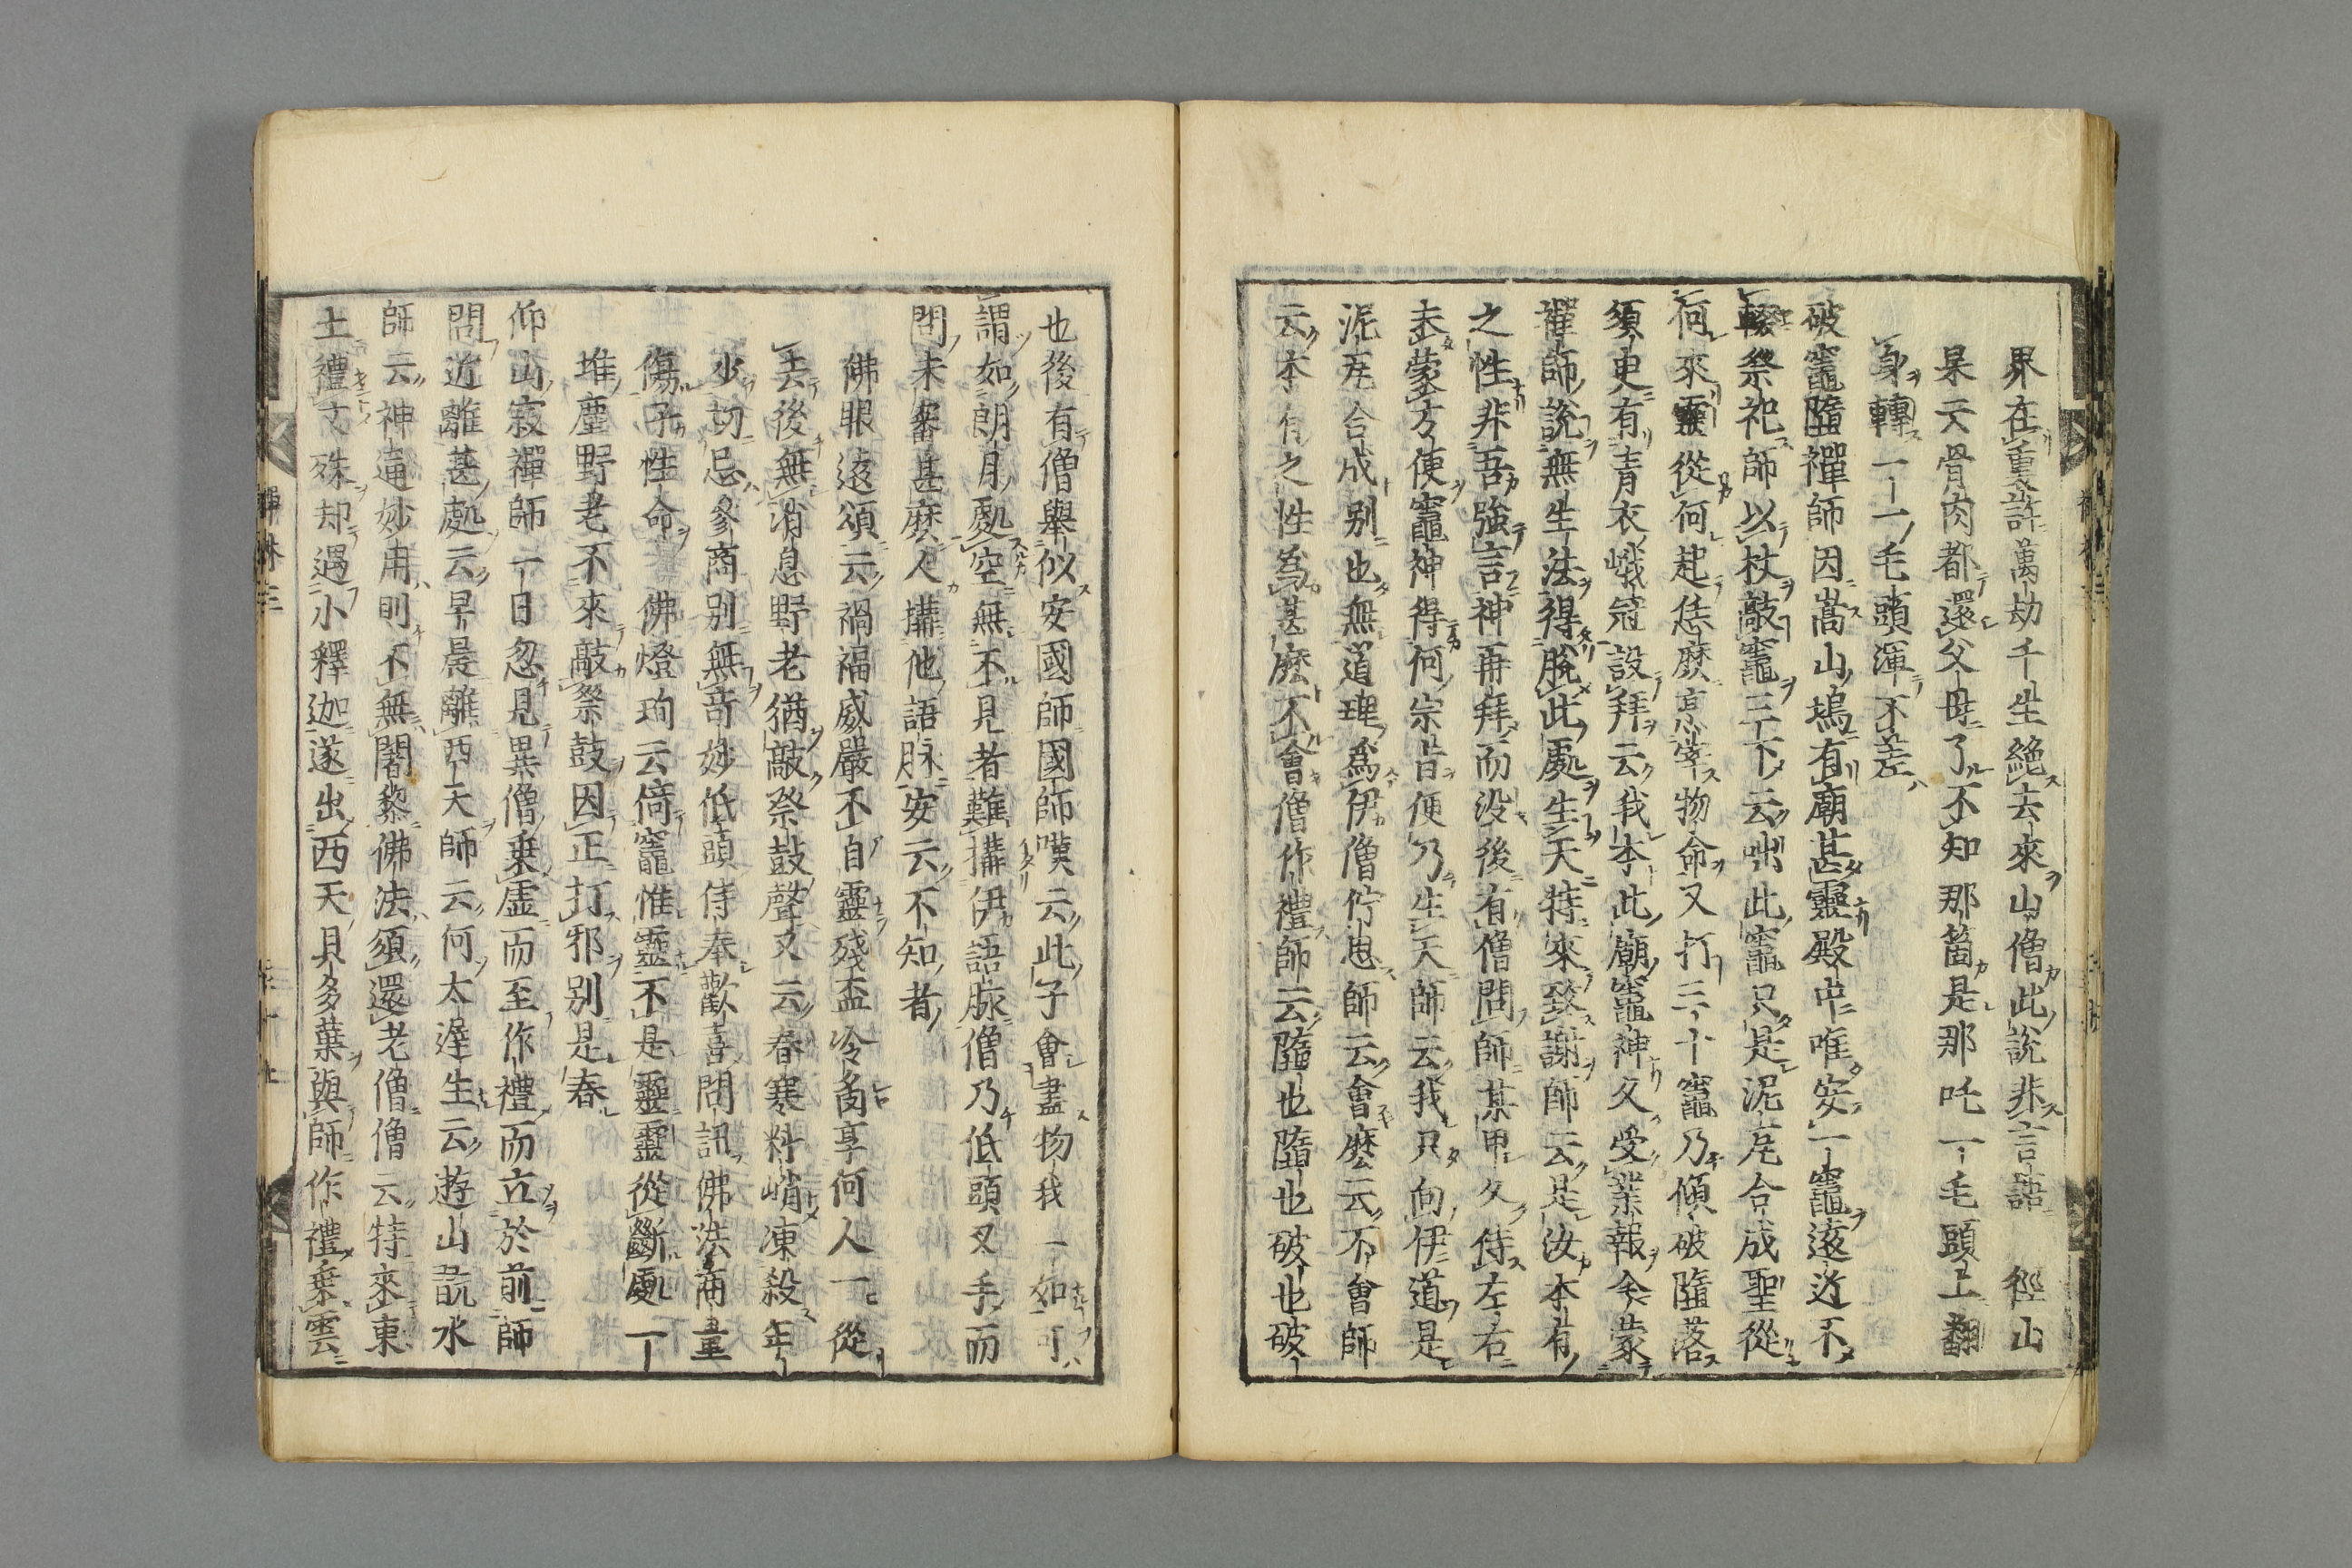 界在重許萬劫千生絶去來山僧此說非言語　徑山
杲云骨肉都還父母了不知那箇是那吒一毛頭上翻
身轉一一毛頭渾不差
破竈墮禪師因嵩山塢有廟甚靈殿中唯安一竈遠近不
輟祭祀師以杖敲竈三下云咄此竈只是泥瓦合成聖從
何來靈從何起恁麽烹宰物命又打三十竈乃傾破墮落
須臾有青衣峨冠設拜云我本此廟竈神久受業報今蒙
禪師說無生法得脫此處生天特來致謝師云是汝本有
之性非吾強言神再拜而没後有僧問師某甲久侍左右
未蒙方便竈神得何宗旨便乃生天師云我只向伊道是
泥瓦合成别也無道理爲伊僧佇思師云會麽云不會師
云本有之性爲甚麽不會僧作禮師云墮也墮也破也破
也後有僧舉似安國師國師嘆云此子會盡物我一如可
謂如朗月處空無不見者難搆伊語脉僧乃低頭叉手而
問未審甚麽人搆他語脉安云不知者
佛眼遠頌云禍福威嚴不自靈殘盃冷炙享何人一從
去後無消息野老猶敲祭鼓聲又云春寒料峭凍殺年
少切忌參商别無竒妙低頭侍奉歡喜問訊佛法商量
傷子性命　佛燈珣云倚竈惟靈不是靈靈從斷處一
堆塵野老不來敲祭鼓因正打邪别是春
仰山寂禪師一日忽見異僧乗虚而至作禮而立於前師
問近離甚處云早晨離西天師云何太遲生云遊山翫水
師云神通妙用則不無闍黎佛法須還老僧僧云特來東
土禮文殊却遇小釋迦遂出西天貝多葉與師作禮乗雲